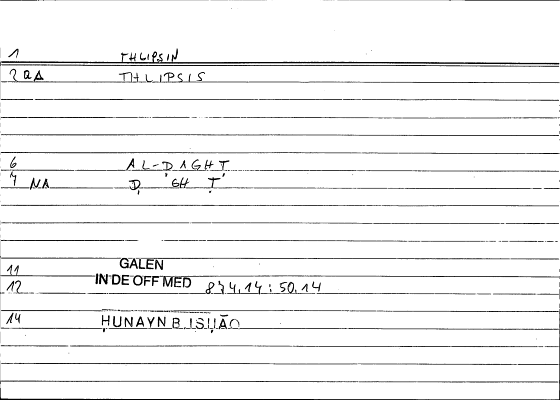 1 THLIPSIN
2 QΔ THLIPSIS
6 AL-ḌAGHṬ
7 NA Ḍ GH Ṭ
11 GALEN
12 IN DE OFF MED 874.14 : 50.14
14 ḤUNAYN B. ISḤĀQ